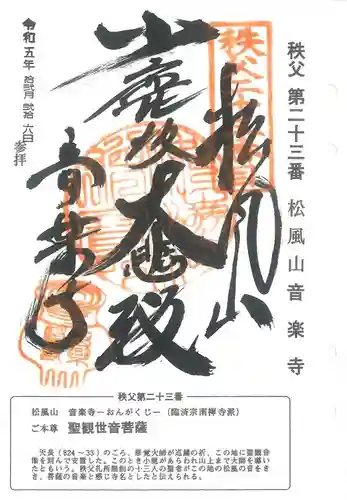 秩父 第二十三番 松風山音楽寺
松風山
大慈殿
音楽寺
令和五年 拾弐月 弐拾六日 参拝
秩父第二十三番
松風山 音楽寺－おんがくじ－（臨済宗南禅寺派）
ご本尊 聖観世音菩薩
天長（824～33）のころ、慈覚大師が巡錫の折、この地に聖観音
像を刻んで安置した。このとき小鹿があらわれ山上まで大師を導い
たともいう。秩父札所開創の十三人の聖者がこの地の松風の音をき
き、菩薩の音楽と感じ寺名としたと伝えられる。